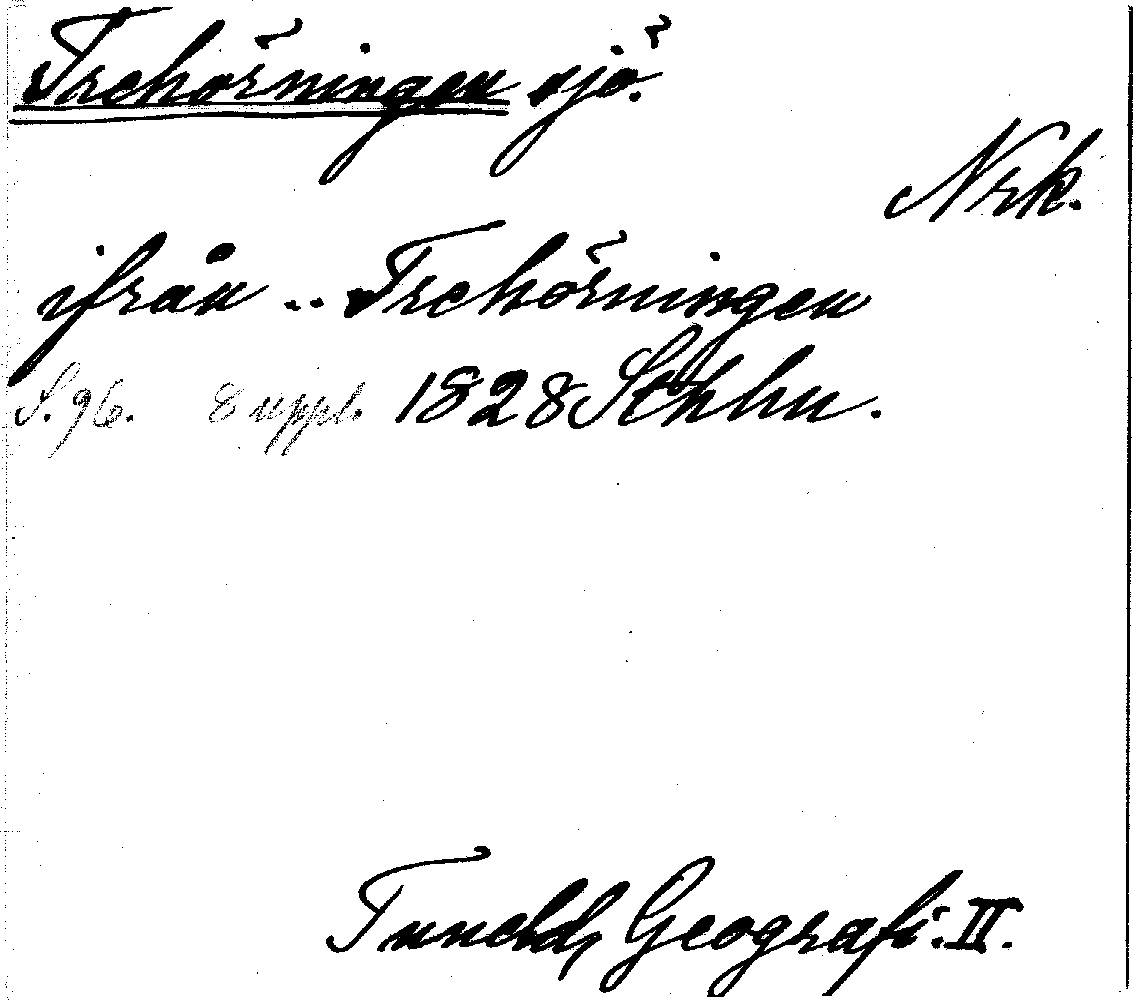 Trehörningen sjö.
Nrk.
ifrån .. Trehörningen
S. 96. 8 uppl. 1828 Sthm.
Tuneld, Geografi. II.